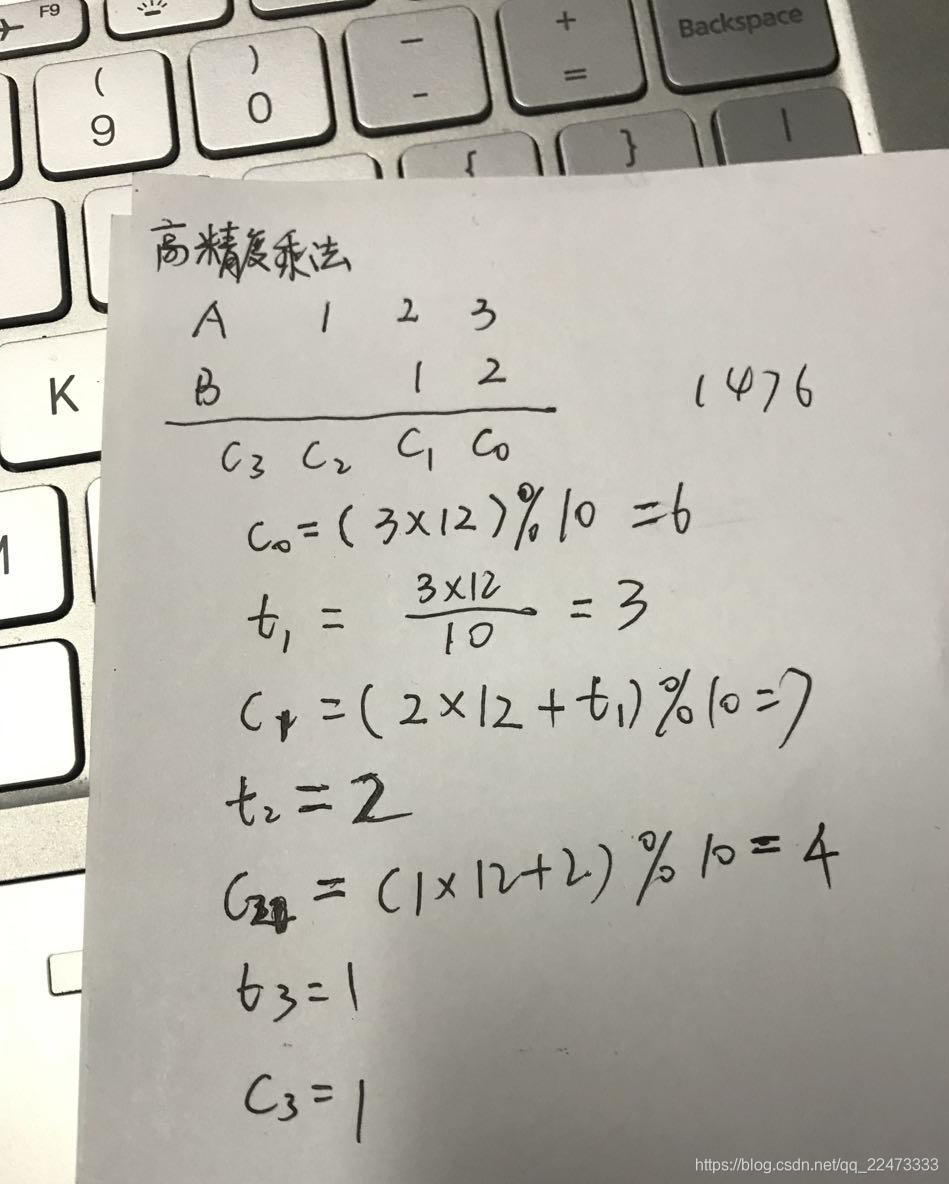 F9
( ) — + Backspace
9 0 - =
{ } |
K
高精度乘法
A 1 2 3
B 1 2 1476
C3 C2 C1 C0
C0 = ( 3 × 12 ) % 10 = 6
t1 = 3×12 / 10 = 3
C1 = ( 2 × 12 + t1 ) % 10 = 7
t2 = 2
C2 = ( 1 × 12 + 2 ) % 10 = 4
t3 = 1
C3 = 1
https://blog.csdn.net/qq_22473333